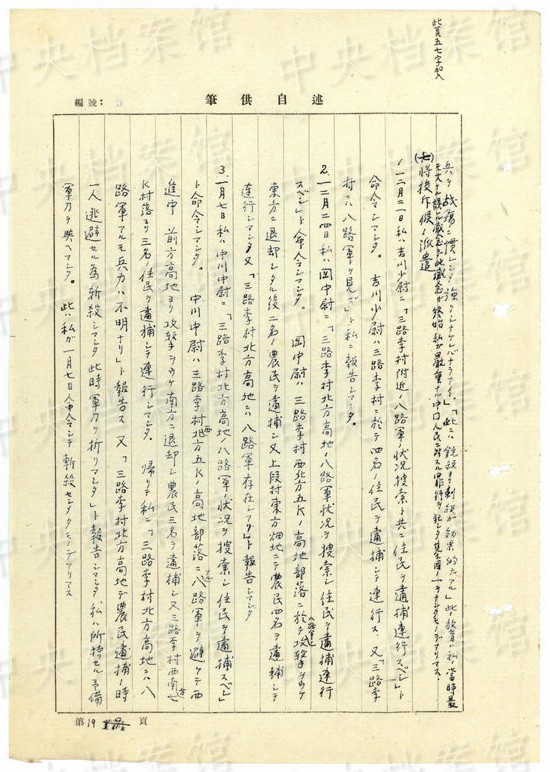 中央档案馆
此頁五七字加入
編號：
筆供自述
兵ヲ戦場ニ慣レシメ強クシナケレバナラナイ」「此ニハ銃殺ヨリ刺殺ガ効果的デアル」此ノ教育ハ私ガ当時最
(七)将校斥候ノ派遣
1.一二月二一日私ハ吉川少尉ニ「三路李村附近ノ八路軍ノ状況捜索ト共ニ住民ヲ逮捕連行スベシ」ト
命令シマシタ。吉川少尉ハ三路李村ニ於テ四名ノ住民ヲ逮捕シテ連行ス、又「三路李
村ニハ八路軍ヲ見ズ」ト私ニ報告シマシタ。
2.一二月二四日私ハ岡中尉ニ「三路李村北方高地ノ八路軍状況ヲ捜索シ住民ヲ逮捕連行
スベシ」ト命令シマシタ。岡中尉ハ三路李村西北方五Kノ高地部落ニ於テ攻撃ヲウケ
東方ニ退却シタル後二名ノ農民ヲ逮捕シ又上段村東方畑地ニテ農民四名ヲ逮捕シテ
連行シマシタ又「三路李村北方高地ニハ八路軍存在シマス」ト報告シマシタ
3.一月七日私ハ中川中尉ニ「三路李村北方高地八路軍ノ状況ヲ捜索シ住民ヲ逮捕スベシ」
ト命令シマシタ。中川中尉ハ三路李村北方五Kノ高地部落ニ八路軍ヲ避ケテ西
進中前方高地ヨリ攻撃ヲウケ南方ニ退却シ農民三名ヲ逮捕シ又三路李村西南七
K村落ヨリ三名ノ住民ヲ逮捕シテ連行シマシタ。帰リテ私ニ「三路李村北方高地ニハ八
路軍アルモ兵力ハ不明ナリ」ト報告ス又「三路李村北方高地デ農民逮捕ノ時
一人逃避セル為斬殺シマシタ此時軍刀ヲ折リマシタ」ト報告シマシタ私ハ所持セル予備
軍刀ヲ与ヘマシタ。此ハ私ガ一月七日人命令シテ斬殺セシメタモノデアリマス
第19頁